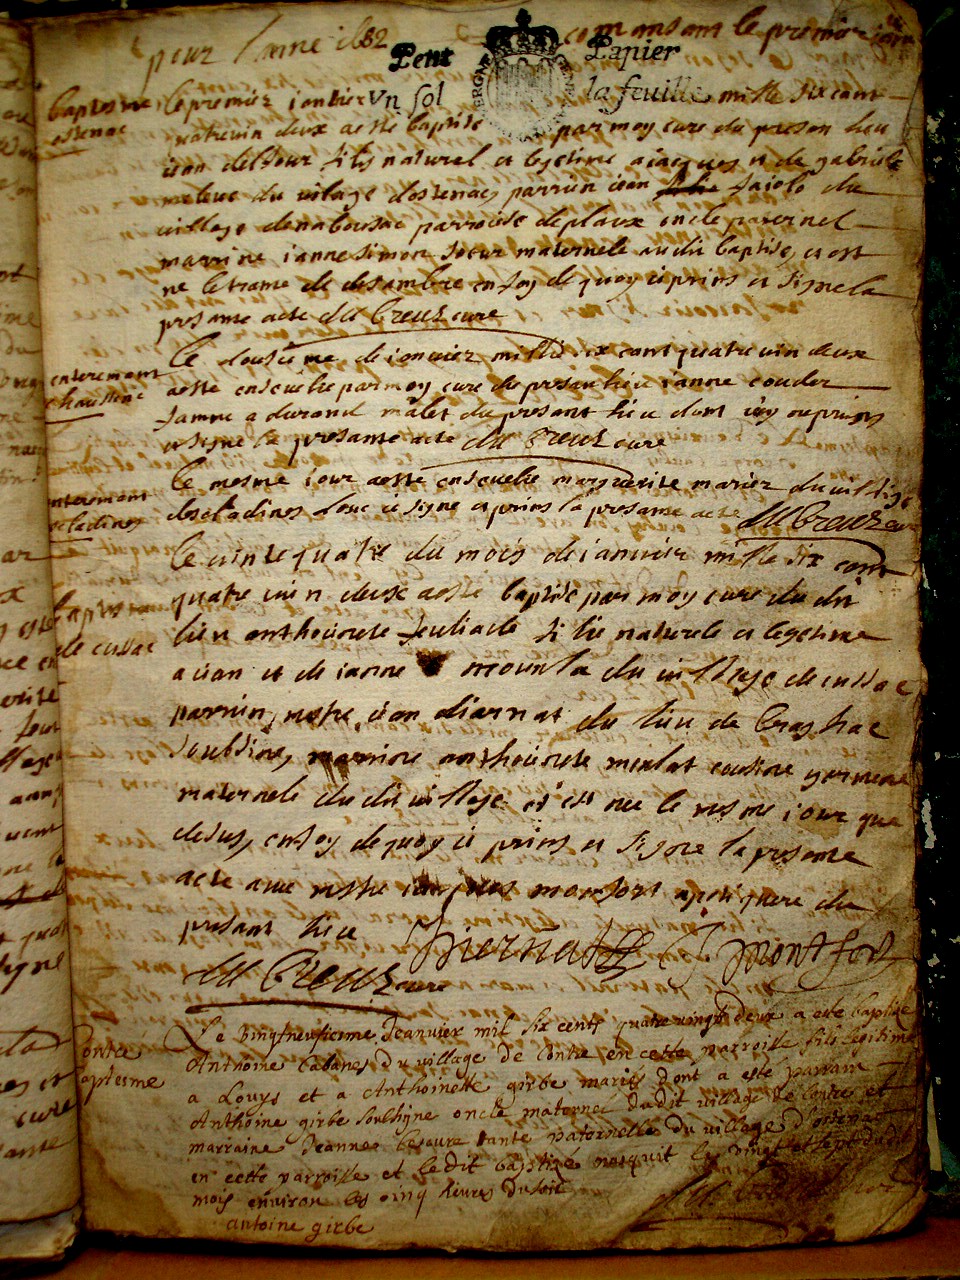 pour l'anne 1682 comansant le premier janv
Petit Papier
Vn sol la feuille
baptesme le premier ianvier mille six cent
ostenac quatre vin deux aeste baptise par moy cure du presen lieu
iean delsour fils naturel et legetime a iacques et de gabriele
du vilage dostenac, parrin iean faiole du
village de nabousac parroisse deplaux oncle paternel
marrine ianne simon soeur maternele audit baptise, et est
ne le trame de desambre en foy de quoy ie prins et signe la
presante acte du Creux cure
enterement le dousieme de ianvier mille six cent quatre vin deux
chaussene aeste ensevelie par moy cure de presan lieu ianne couder
famme a durand malet du presant lieu dont
et signe la presante acte du Creux cure
enterement le mesme iour aeste ensevelie marguerite marier du village
descladines dont ie signe et prins la presante acte du Creux cure
le vinte quatre du mois de ianvier mille six cent
baptesme quatre vin deux aeste baptise par moy cure du dit
de cussac lieu anthoinete filie naturele et legetime
a iean et de ianne mounta du village de cussac
parrin, mestre iean diarnat du lieu de
marrine anthoinete merlat cousine germene
maternele du dit village et est nee le mesme iour que
desus, en foy de quoy ie prins et signe la presante
acte avec mestre monfort apotiquere du
presant lieu Diernat Montfort
du Creux cure
Le vingtneufiesme Jeanvier mil six cents quatre vingt deux a este baptise
Contre Anthoine Cabanes du village de Contre en cette parroisse fils legitime
baptesme a Louys et a Anthoinette girbe mariés dont a este parrain
Anthoine girbe oncle maternel dudit village de Contre et
marraine Jeanne tante paternelle du village d'ostenac
en cette parroisse et ledit baptizé nasquit le vingt et sept dudit
mois environ les cinq heures du soir
antoine girbe